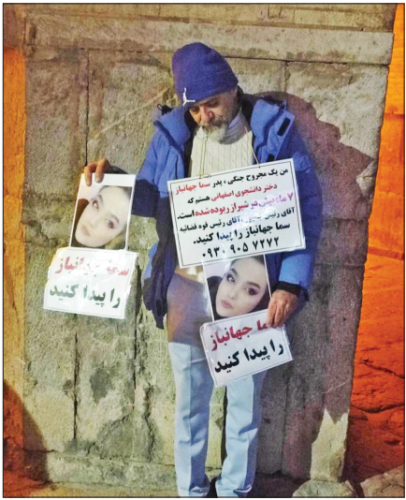 من یک مجروح جنگی ، پدر سما جهانباز
دختر دانشجوی اصفهانی هستم که
۷ ماه پیش در شیراز ربوده شده است.
آقای رئیس آقای رئیس قوه قضائیه
سما جهانباز را پیدا کنید.
۰۹۳۰ ۹۰۵ ۷۲۷۲
سما جهانباز
را پیدا کنید
سما جهانباز
را پیدا کنید